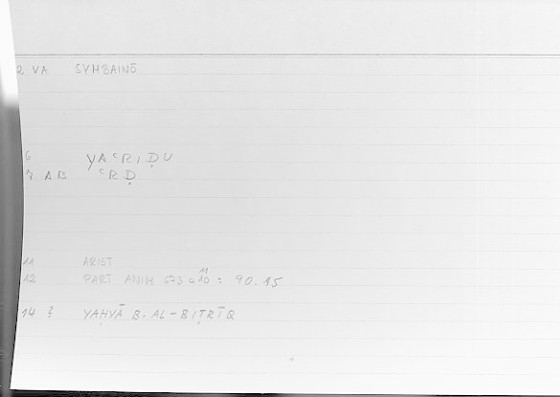 2 VA SYMBAINŌ
6 YAʿRIḌU
7 AB ʿRḌ
11 ARIST
12 PART ANIM 673 a 10 11 : 90.15
14 ? YAḤYĀ B. AL-BIṬRĪQ